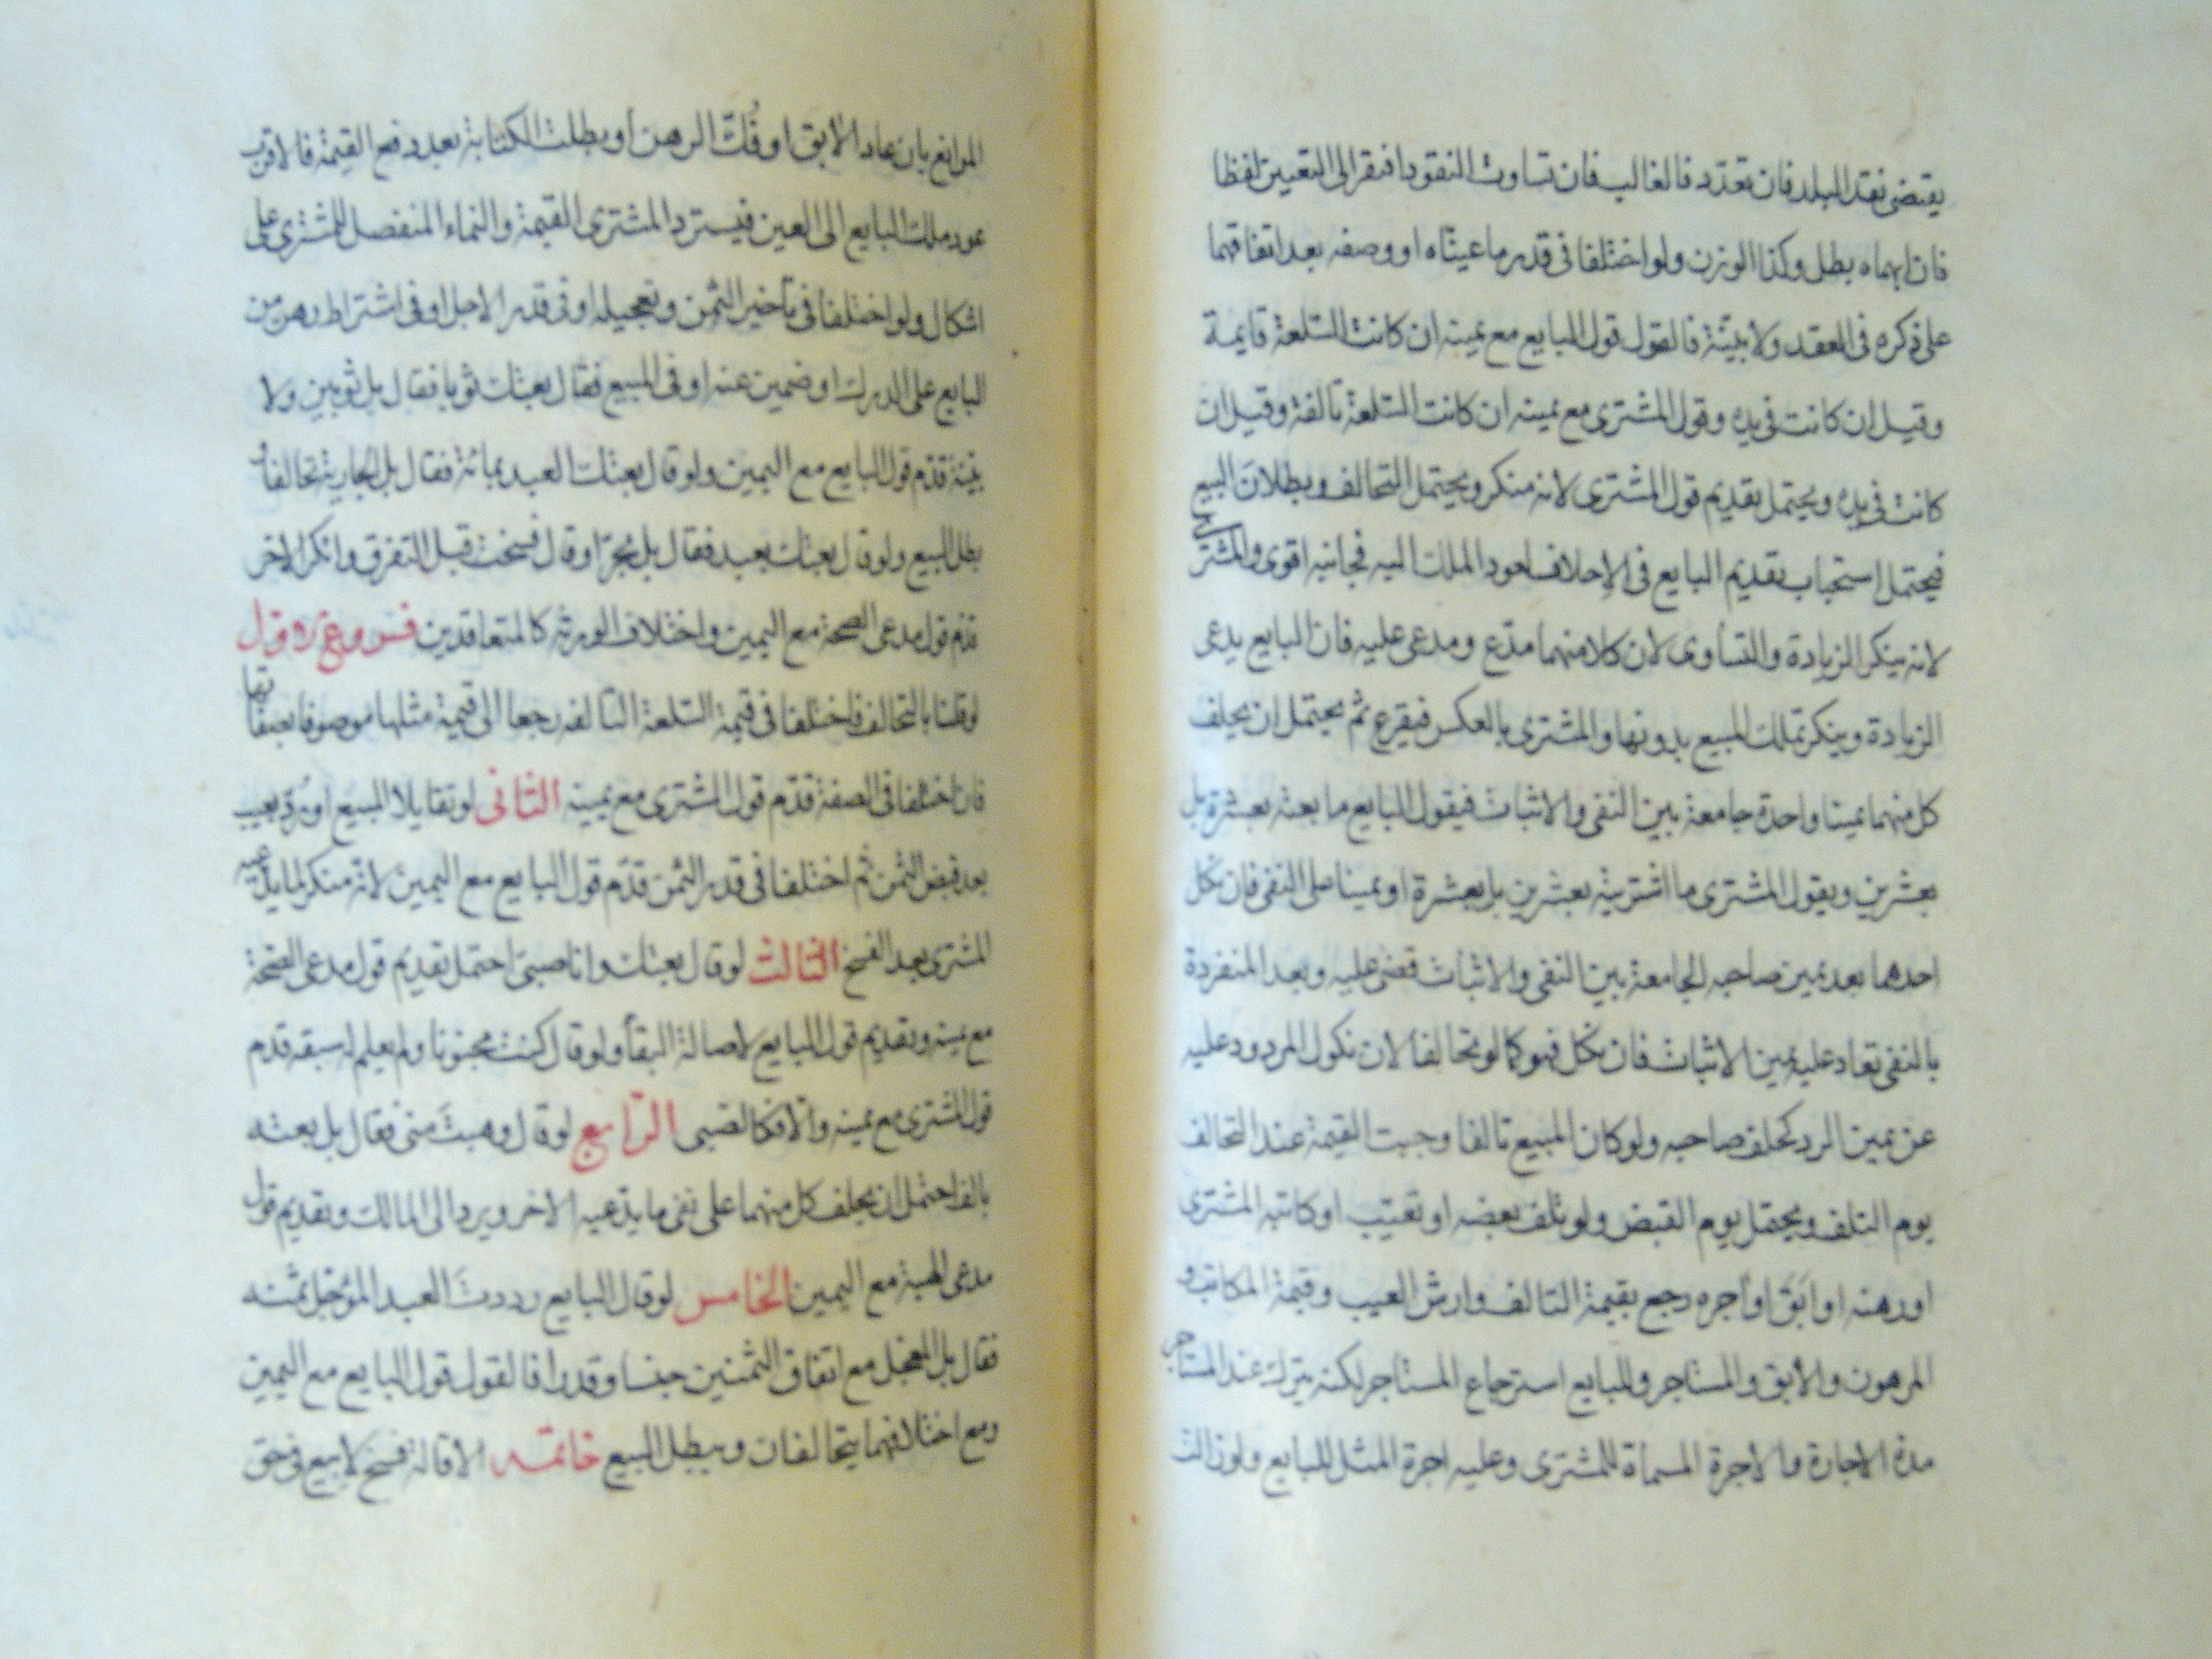 يقتضى نقد البلد فان تعدد فالغالب فان تساوت النقود افتقر الى التعيين لفظا
فان ابهماه بطل وكذا الوزن ولو اختلفا فى قدر ما عيناه او وصفه بعد اتفاقهما
على ذكره فى العقد ولا بينة فالقول قول البايع مع يمينه ان كانت السلعة قايمة
وقيل ان كانت فى يده وقول المشترى مع يمينه ان كانت السلعة تالفة وقيل ان
كانت فى يده ويحتمل تقديم قول المشترى لانه منكر ويحتمل التحالف وبطلان البيع
فيحتمل استحباب تقديم البايع فى الاحلاف لعود الملك اليه فجانبه اقوى والمشترى
لانه ينكر الزيادة والتساوى لان كلا منهما مدّع ومدعى عليه فان البايع يدعى
الزيادة وينكر تملك المبيع بدونها والمشترى بالعكس فيقرع ثم يحتمل ان يحلف
كل منهما يمينا واحدة جامعة بين النفى والاثبات فيقول البايع ما بعته بعشرة بل
بعشرين ويقول المشترى ما اشتريته بعشرين بل بعشرة او يمينا على النفى فان نكل
احدهما بعد يمين صاحبه الجامعة بين النفى والاثبات قضى عليه وبعد المنفردة
بالنفى تعاد عليه يمين الاثبات فان نكل فهو كما لو تحالفا لان نكول المردود عليه
عن يمين الرد كحلف صاحبه ولو كان المبيع تالفا وجبت القيمة عند التحالف
يوم التلف ويحتمل يوم القبض ولو تلف بعضه او تعيّب او كاتبه المشترى
او رهنه او ابَقَ او آجره رجع بقيمة التالف وارش العيب وقيمة المكاتب و
المرهون والآبق والمستاجر وللبايع استرجاع المستاجر لكنه يترك عند المستاجر
مدة الاجارة والاجرة المسماة للمشترى وعليه اجرة المثل للبايع ولو زالت
الموانع بان عاد الآبق او فُكّ الرهن او بطلت الكتابة بعد دفع القيمة فالاقرب
عود ملك البايع الى العين فيسترد المشترى القيمة والنماء المنفصل للمشترى على
اشكال ولو اختلفا فى تأخير الثمن وتعجيله او فى قدر الاجل او فى اشتراط رهن من
البايع على الدرك او ضمين عنه او فى المبيع فقال بعتك ثوبا فقال بل ثوبين ولا
بينة قدّم قول البايع مع اليمين ولو قال بعتك العبد بمائة فقال بل الجارية تحالفا و
بطل البيع ولو قال بعتك بعبد فقال بل بحرّ او قال فسخت قبل التفرق وانكر الاخر
قدم قول مدعى الصحة مع اليمين واختلاف الورثة كالمتعاقدين فروع الاول
لو قلنا بالتحالف فاختلفا فى قيمة السلعة التالفه رجعا الى قيمة مثلها موصوفا بصفاتها
فان اختلفا فى الصفة قدّم قول المشترى مع يمينه الثانى لو تقايلا المبيع او رُدّ بعيب
بعد قبض الثمن ثم اختلفا فى قدر الثمن قدّم قول البايع مع اليمين لانه منكر لما يدّعيه
المشترى بعد الفسخ الثالث لو قال بعتك وانا صبىّ احتمل تقديم قول مدعى الصحة
مع يمينه وتقديم قول البايع لاصالة البقاء ولو قال كنت مجنونا ولم يعلم له سبقه قدم
قول المشترى مع يمينه والّا فكالصبى الرّابع لو قال وهبتَ منى فقال بل بعته
بالف احتمل ان يحلف كل منهما على نفى ما يدّعيه الاخر ويرد الى المالك وتقديم قول
مدعى الهبة مع اليمين الخامس لو قال البايع رددتَ العبد المؤجل بثمنه
فقال بل المعجل مع اتفاق الثمنين جنسا وقدرا فالقول قول البايع مع اليمين
ومع اختلافهما يتحالفان ويبطل البيع خاتمه الاقالة فسخ لا بيع فى حق